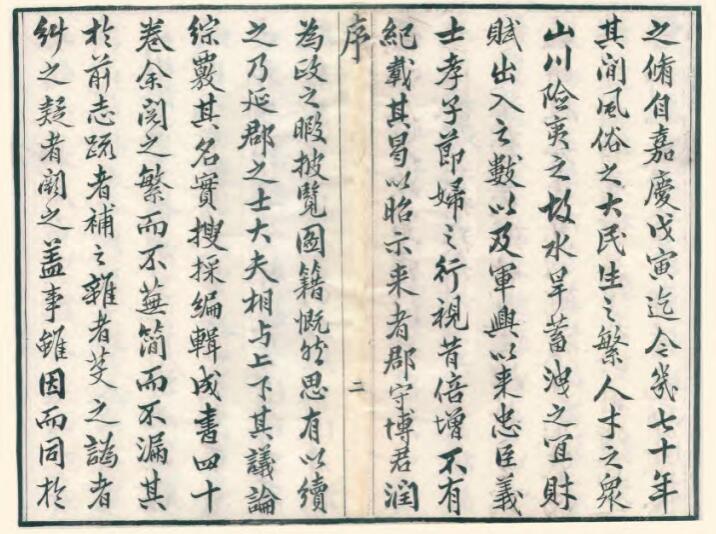 之脩自嘉慶戊寅迄今幾七十年
其間風俗之大民生之繁人才之眾
山川險夷之故水旱蓄洩之宜財
賦出入之數以及軍興以来忠臣義
士孝子節婦之行視昔倍增不有
紀載其曷以昭示来者郡守博君潤
序
二
為政之暇披覽圖籍慨然思有以續
之乃延郡之士大夫相与上下其議論
綜覈其名實搜採編輯成書四十
卷余閱之繁而不蕪簡而不漏其
於前志疏者補之雜者芟之譌者
糾之疑者闕之蓋事雖因而同於